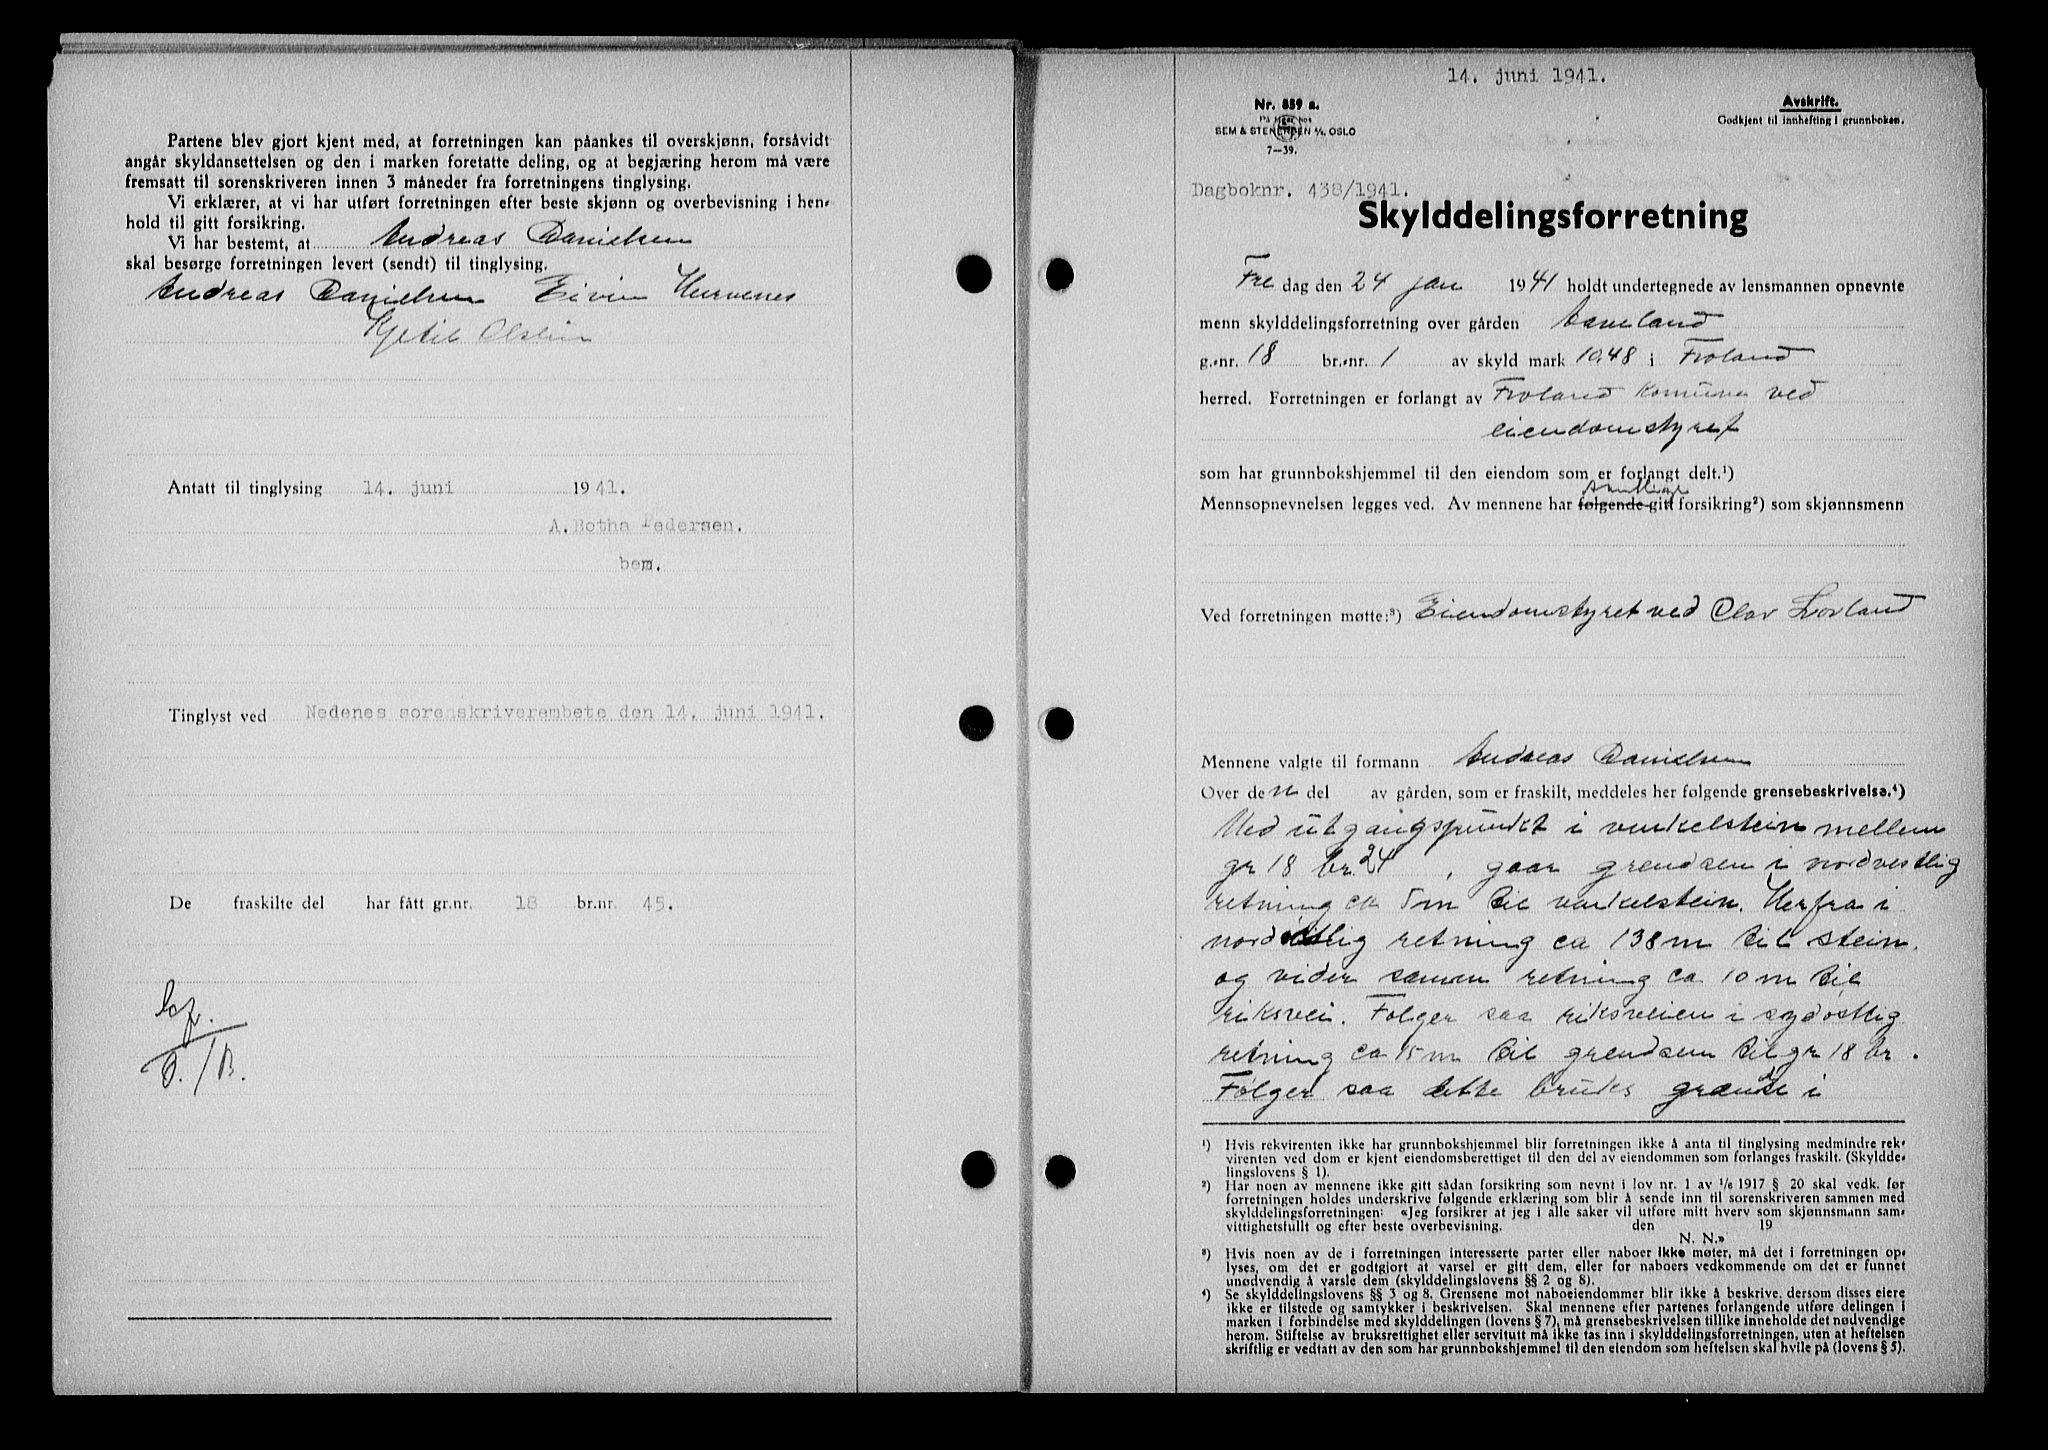 Partene blev gjort kjent med, at forretningen kan påankes til overskjønn, forsåvidt
angår skyldansettelsen og den i marken foretatte deling, og at begjæring herom må være
fremsatt til sorenskriveren innen 3 måneder fra forretningens tinglysing.
Vi erklærer, at vi har utført forretningen efter beste skjønn og overbevisning i hen-
hold til gitt forsikring.
Vi har bestemt, at Andreas Danielsen
skal besørge forretningen levert (sendt) til tinglysing.
Andreas Danielsen Eivin Hurvenes
Kjetil
Antatt til tinglysing 14. juni 1941.
A. Botha Pedersen.
bem.
Tinglyst ved Nedenes sorenskriverembete den 14. juni 1941.
De fraskilte del har fått gr.nr. 18 br.nr. 45.
14. juni 1941.
Nr. 859 a.
På lager hos
SEM & STENERSEN A/S, OSLO
7—39.
Avskrift.
Godkjent til innhefting i grunnboken.
Dagboknr. 438/1941.
Skylddelingsforretning
Fre dag den 24 jan 1941 holdt undertegnede av lensmannen opnevnte
menn skylddelingsforretning over gården
g.-nr. 18 br.-nr. 1 av skyld mark 10.48 i Froland
herred. Forretningen er forlangt av Froland Komune ved
eiendomstyret
som har grunnbokshjemmel til den eiendom som er forlangt delt.¹)
Mennsopnevnelsen legges ved. Av mennene har følgende samtlige gitt forsikring²) som skjønnsmenn
Ved forretningen møtte:³) Eiendomstyret ved Olav Lovland
Mennene valgte til formann Andreas Danielsen
Over den del av gården, som er fraskilt, meddeles her følgende grensebeskrivelse.⁴)
Med utgangspunkt i vinkelstein mellem
gr 18 br. 24, gaar grendsen i nordvestlig
retning ca 5 m til vinkelstein. Herfra i
nordostlig retning ca 138 m til stein.
og vider samme retning ca 10 m til
riksvei. Følger saa riksveien i sydostlig
retning ca 15 m til grendsen til gr 18 br .
Følger saa dette bruks grendse i
¹) Hvis rekvirenten ikke har grunnbokshjemmel blir forretningen ikke å anta til tinglysing medmindre rek-
virenten ved dom er kjent eiendomsberettiget til den del av eiendommen som forlanges fraskilt. (Skyldde-
lingslovens § 1).
²) Har noen av mennene ikke gitt sådan forsikring som nevnt i lov nr. 1 av 1/6 1917 § 20 skal vedk. før
forretningen holdes underskrive følgende erklæring som blir å sende inn til sorenskriveren sammen med
skylddelingsforretningen: «Jeg forsikrer at jeg i alle saker vil utføre mitt hverv som skjønnsmann sam-
vittighetsfullt og efter beste overbevisning. den 19
N. N.»
³) Hvis noen av de i forretningen interesserte parter eller naboer ikke møter, må det i forretningen op-
lyses, om det er godtgjort at varsel er gitt dem, eller for naboers vedkommende om det er funnet
unødvendig å varsle dem (skylddelingslovens §§ 2 og 8).
⁴) Se skylddelingslovens §§ 3 og 8. Grensene mot naboeiendommer blir ikke å beskrive, dersom disses eiere
ikke er tilstede og samtykker i beskrivelsen. Skal mennene efter partenes forlangende utføre delingen i
marken i forbindelse med skylddelingen (lovens § 7), må grensebeskrivelsen tillike inneholde det nødvendige
herom. Stiftelse av bruksrettighet eller servitutt må ikke tas inn i skylddelingsforretningen, uten at heftelsen
skriftlig er vedtatt av den som har grunnbokshjemmel til den eiendom som heftelsen skal hvile på (lovens § 5).